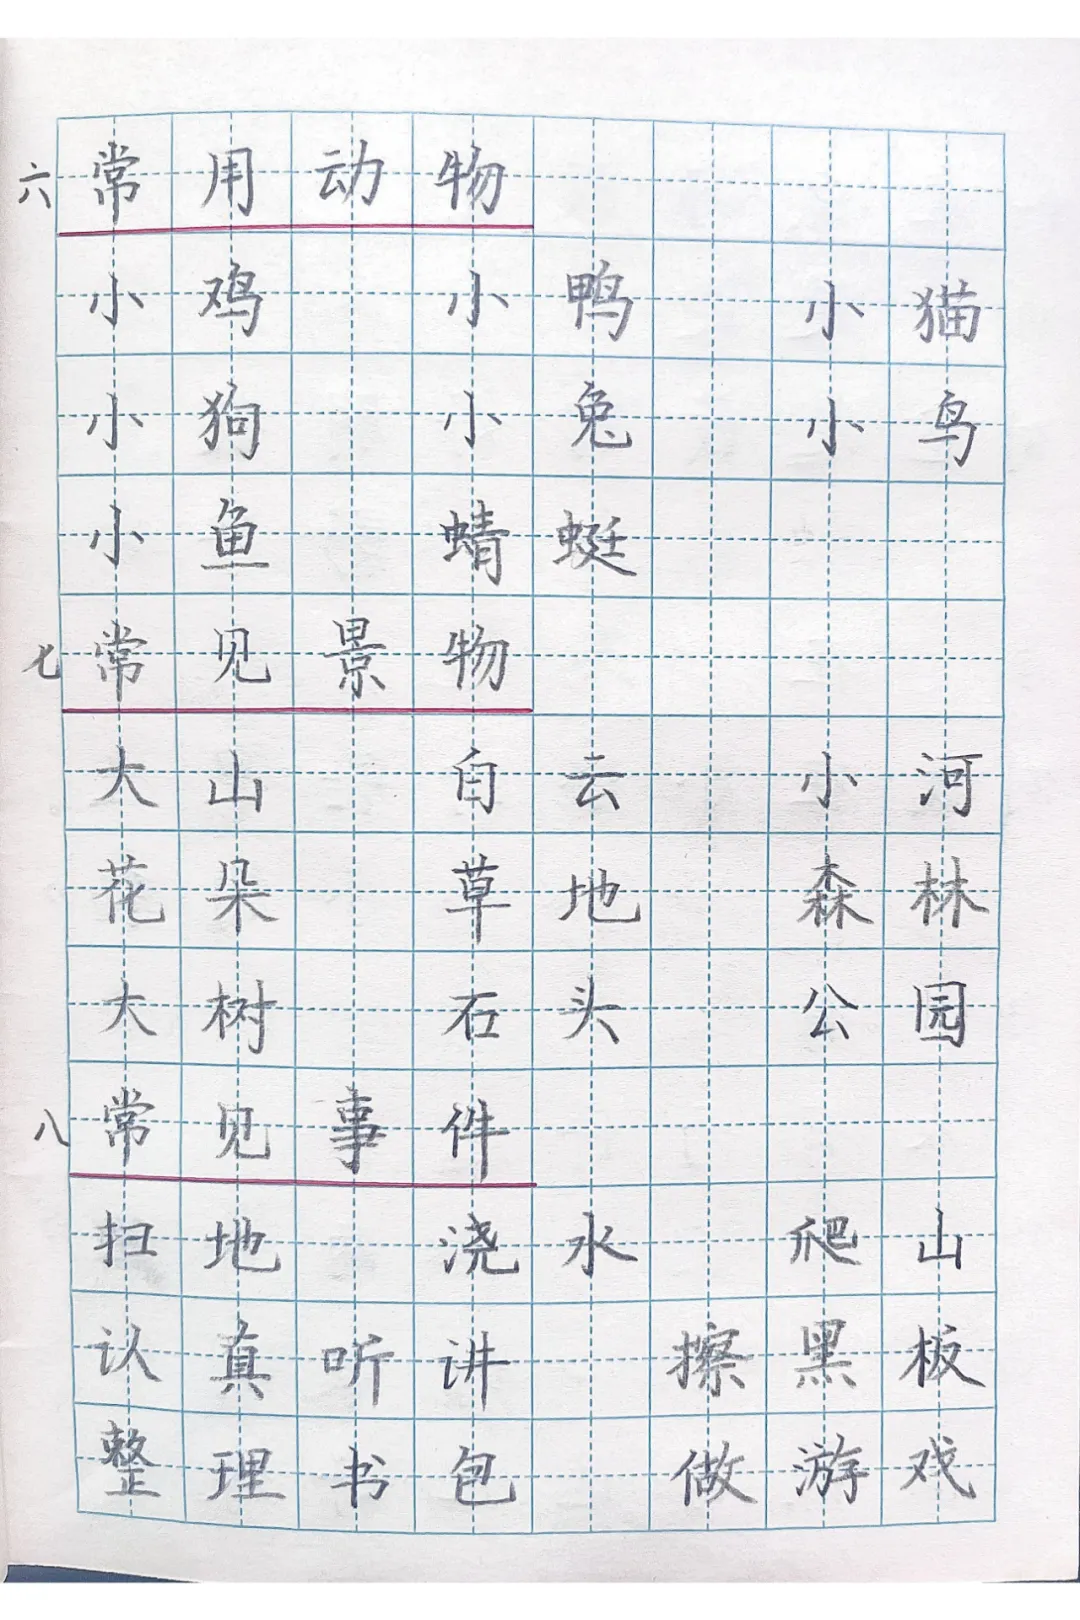 六 常用动物
小鸡 小鸭 小猫
小狗 小兔 小鸟
小鱼 蜻蜓
七 常见景物
大山 白云 小河
花朵 草地 森林
大树 石头 公园
八 常见事件
扫地 浇水 爬山
认真听讲 擦黑板
整理书包 做游戏